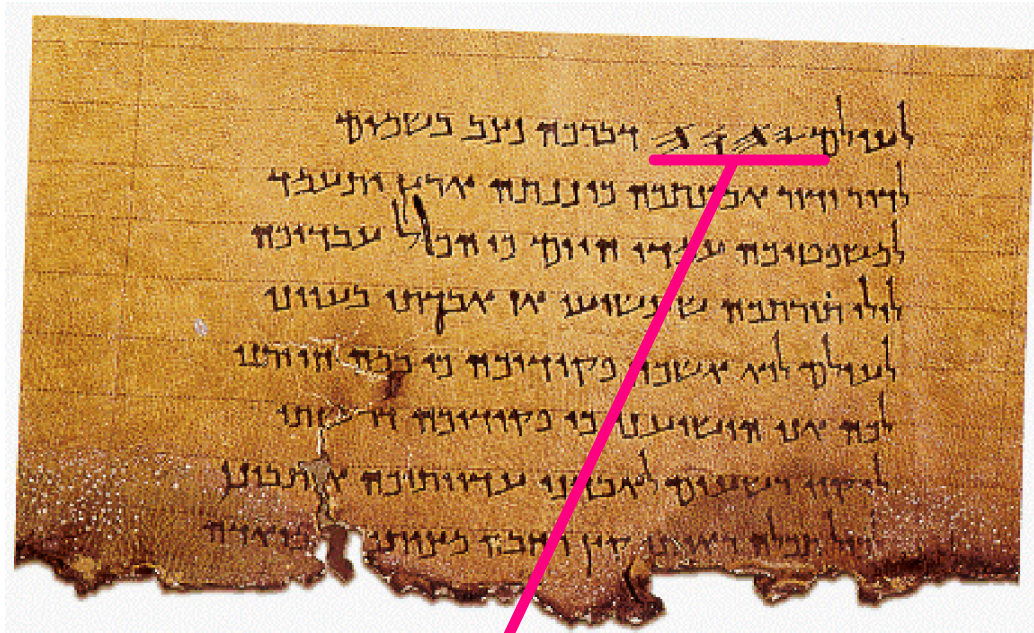 לעולם 𐤉𐤄𐤅𐤄 דברכה נצב בשמים
לדור ודור אמונתכה כוננתה ארץ ותעמד
למשפטיכה עמדו היום כי הכול עבדיכה
לולי תורתכה שעשועי אז אבדתי בעווני
לעולם לוא אשכח פקודיכה כי במה חייתני
לכה אני הושיעני כי פקודיכה דרשתי
לי קוו רשעים לאבדני עדוותיכה אתבונן
תכלה ראיתי קץ רחבה